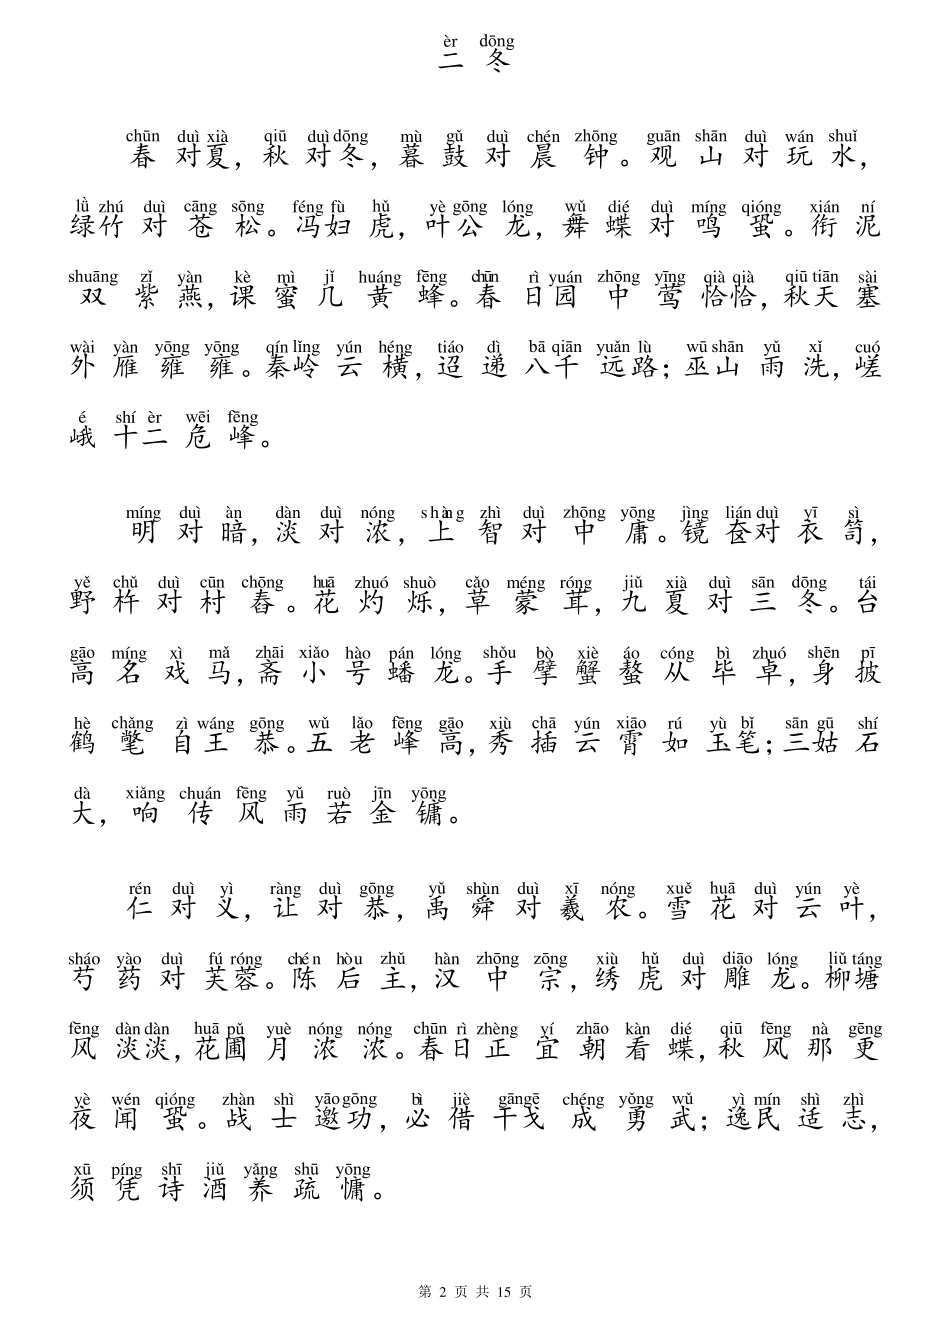 èr dōng
二 冬
chūn duì xià qiū duì dōng mù gǔ duì chén zhōng guān shān duì wán shuǐ
春 对 夏，秋 对 冬，暮 鼓 对 晨 钟。观 山 对 玩 水，
lǜ zhú duì cāng sōng féng fù hǔ yè gōng lóng wǔ dié duì míng qióng xián ní
绿 竹 对 苍 松。冯 妇 虎，叶 公 龙，舞 蝶 对 鸣 蛩。衔 泥
shuāng zǐ yàn kè mì jǐ huáng fēng chūn rì yuán zhōng yīng qià qià qiū tiān sài
双 紫 燕，课 蜜 几 黄 蜂。春 日 园 中 莺 恰 恰，秋 天 塞
wài yàn yōng yōng qín lǐng yún héng tiáo dì bā qiān yuǎn lù wū shān yǔ xǐ cuó
外 雁 雍 雍。秦 岭 云 横，迢 递 八 千 远 路；巫 山 雨 洗，嵯
é shí èr wēi fēng
峨 十 二 危 峰。
míng duì àn dàn duì nóng shàng zhì duì zhōng yōng jìng lián duì yī sì
明 对 暗，淡 对 浓，上 智 对 中 庸。镜 奁 对 衣 笥，
yě chǔ duì cūn chōng huā zhuó shuò cǎo méng róng jiǔ xià duì sān dōng tái
野 杵 对 村 舂。花 灼 烁，草 蒙 茸，九 夏 对 三 冬。台
gāo míng xì mǎ zhāi xiǎo hào pán lóng shǒu bò xiè áo cóng bì zhuó shēn pī
高 名 戏 马，斋 小 号 蟠 龙。手 擘 蟹 螯 从 毕 卓，身 披
hè chǎng zì wáng gōng wǔ lǎo fēng gāo xiù chā yún xiāo rú yù bǐ sān gū shí
鹤 氅 自 王 恭。五 老 峰 高，秀 插 云 霄 如 玉 笔；三 姑 石
dà xiǎng chuán fēng yǔ ruò jīn yōng
大，响 传 风 雨 若 金 镛。
rén duì yì ràng duì gōng yǔ shùn duì xī nóng xuě huā duì yún yè
仁 对 义，让 对 恭，禹 舜 对 羲 农。雪 花 对 云 叶，
sháo yào duì fú róng chén hòu zhǔ hàn zhōng zōng xiù hǔ duì diāo lóng liǔ táng
芍 药 对 芙 蓉。陈 后 主，汉 中 宗，绣 虎 对 雕 龙。柳 塘
fēng dàn dàn huā pǔ yuè nóng nóng chūn rì zhèng yí zhāo kàn dié qiū fēng nà gēng
风 淡 淡，花 圃 月 浓 浓。春 日 正 宜 朝 看 蝶，秋 风 那 更
yè wén qióng zhàn shì yāo gōng bì jiè gān gē chéng yǒng wǔ yì mín shì zhì
夜 闻 蛩。战 士 邀 功，必 借 干 戈 成 勇 武；逸 民 适 志，
xū píng shī jiǔ yǎng shū yōng
须 凭 诗 酒 养 疏 慵。
第 2 页 共 15 页